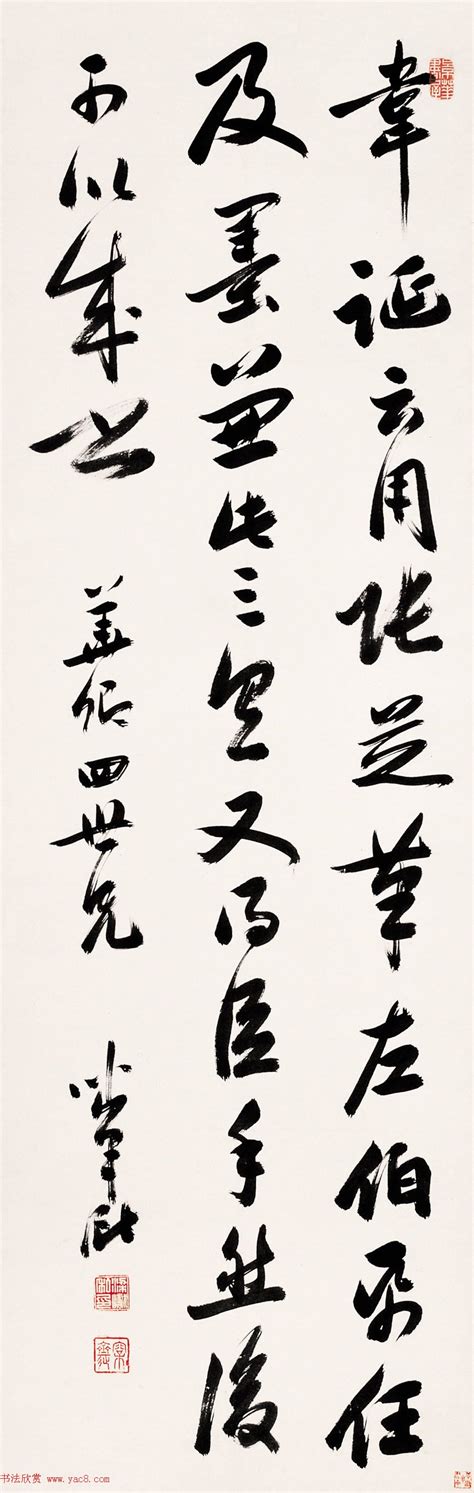 韋誕云用張芝筆左伯帋任
及墨兼此三具又得臣手然後
可以成
卿四世兄
书法欣赏 www.yac8.com